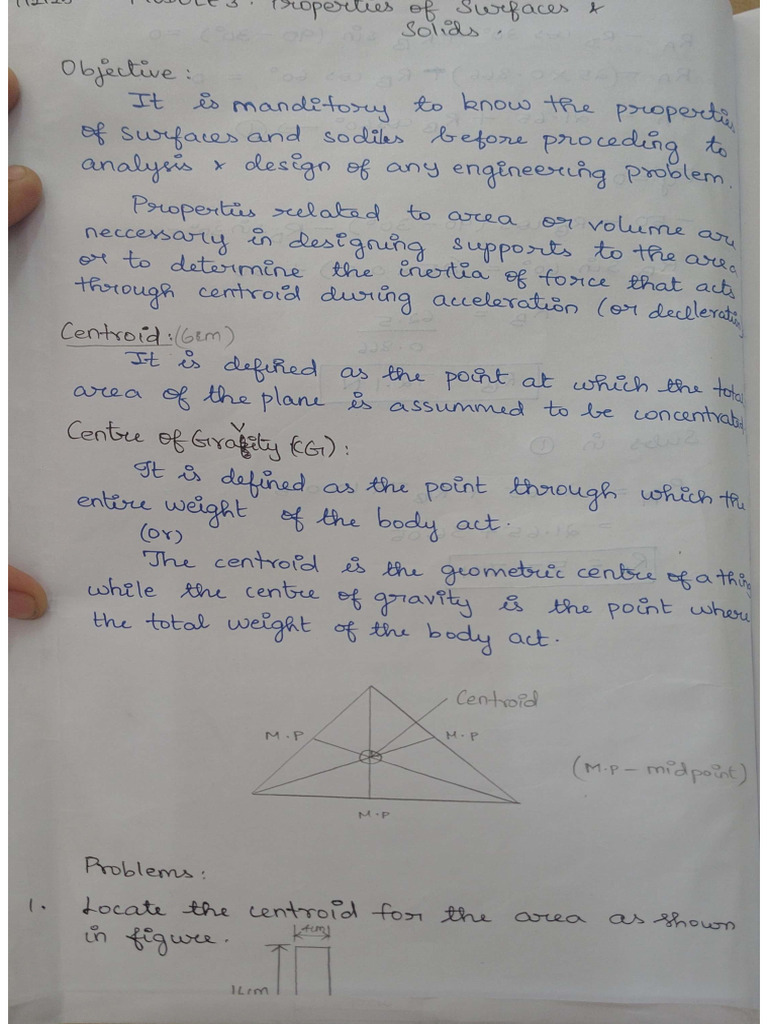 Module 3: Properties of Surfaces &
Solids.
Objective:
It is manditory to know the properties
of surfaces and sodiles before proceding to
analysis & design of any engineering problem.
Properties related to area or volume are
neccessary in designing supports to the area
or to determine the inertia of force that acts
through centroid during acceleration (or decleration
Centroid: (6em)
It is defined as the point at which the total
area of the plane is assummed to be concentrated
Centre of Gravity (CG):
It is defined as the point through which the
entire weight of the body act.
(or)
The centroid is the geometric centre of a thing
while the centre of gravity is the point where
the total weight of the body act.
Centroid
M.P
M.P
(M.P - midpoint)
M.P
Problems:
1. Locate the centroid for the area as shown
in figure.
4cm
12cm